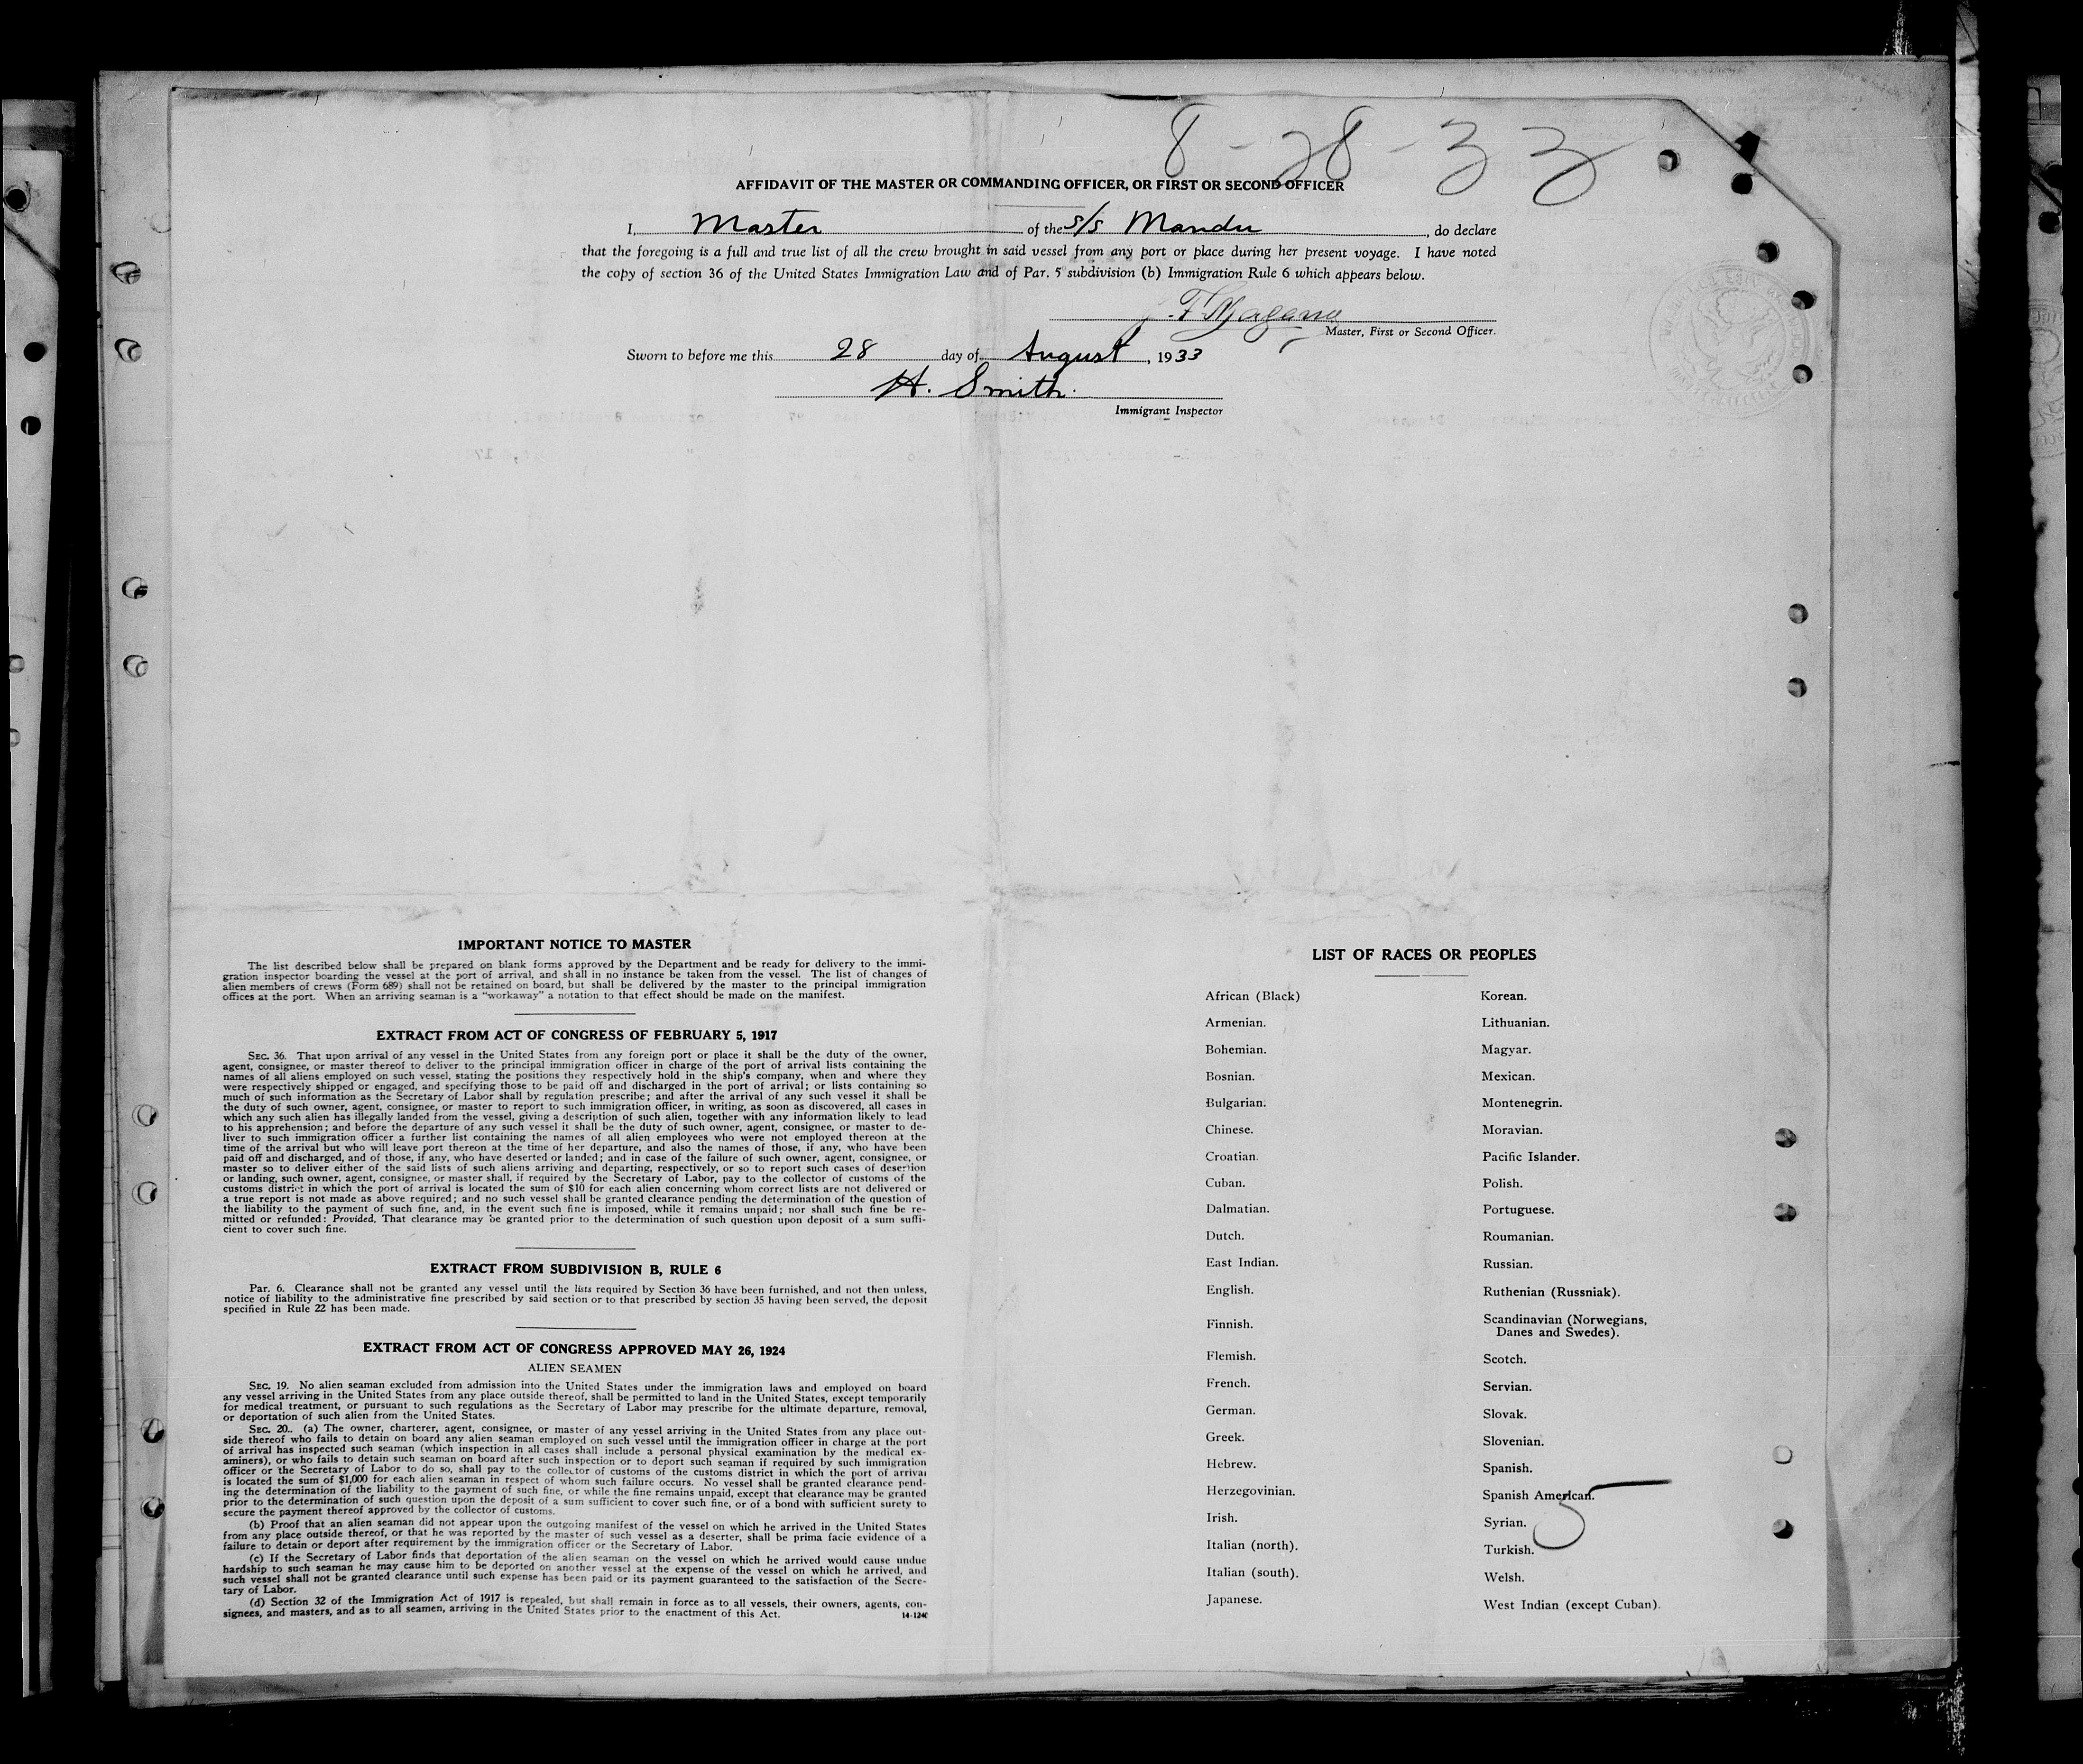 8-28-33
AFFIDAVIT OF THE MASTER OR COMMANDING OFFICER, OR FIRST OR SECOND OFFICER
I, Master of the s/s Mandu, do declare
that the foregoing is a full and true list of all the crew brought in said vessel from any port or place during her present voyage. I have noted
the copy of section 36 of the United States Immigration Law and of Par. 5 subdivision (b) Immigration Rule 6 which appears below.
Master, First or Second Officer.
Sworn to before me this 28 day of August, 1933
H. Smith.
Immigrant Inspector
IMPORTANT NOTICE TO MASTER
The list described below shall be prepared on blank forms approved by the Department and be ready for delivery to the immi-
gration inspector boarding the vessel at the port of arrival, and shall in no instance be taken from the vessel. The list of changes of
alien members of crews (Form 689) shall not be retained on board, but shall be delivered by the master to the principal immigration
offices at the port. When an arriving seaman is a "workaway" a notation to that effect should be made on the manifest.
EXTRACT FROM ACT OF CONGRESS OF FEBRUARY 5, 1917
SEC. 36. That upon arrival of any vessel in the United States from any foreign port or place it shall be the duty of the owner,
agent, consignee, or master thereof to deliver to the principal immigration officer in charge of the port of arrival lists containing the
names of all aliens employed on such vessel, stating the positions they respectively hold in the ship's company, when and where they
were respectively shipped or engaged, and specifying those to be paid off and discharged in the port of arrival; or lists containing so
much of such information as the Secretary of Labor shall by regulation prescribe; and after the arrival of any such vessel it shall be
the duty of such owner, agent, consignee, or master to report to such immigration officer, in writing, as soon as discovered, all cases in
which any such alien has illegally landed from the vessel, giving a description of such alien, together with any information likely to lead
to his apprehension; and before the departure of any such vessel it shall be the duty of such owner, agent, consignee, or master to de-
liver to such immigration officer a further list containing the names of all alien employees who were not employed thereon at the
time of the arrival but who will leave port thereon at the time of her departure, and also the names of those, if any, who have been
paid off and discharged, and of those, if any, who have deserted or landed; and in case of the failure of such owner, agent, consignee, or
master so to deliver either of the said lists of such aliens arriving and departing, respectively, or so to report such cases of desertion
or landing, such owner, agent, consignee, or master shall, if required by the Secretary of Labor, pay to the collector of customs of the
customs district in which the port of arrival is located the sum of $10 for each alien concerning whom correct lists are not delivered or
a true report is not made as above required; and no such vessel shall be granted clearance pending the determination of the question of
the liability to the payment of such fine, and, in the event such fine is imposed, while it remains unpaid; nor shall such fine be re-
mitted or refunded: Provided, That clearance may be granted prior to the determination of such question upon deposit of a sum suffi-
cient to cover such fine.
EXTRACT FROM SUBDIVISION B, RULE 6
Par. 6. Clearance shall not be granted any vessel until the lists required by Section 36 have been furnished, and not then unless,
notice of liability to the administrative fine prescribed by said section or to that prescribed by section 35 having been served, the deposit
specified in Rule 22 has been made.
EXTRACT FROM ACT OF CONGRESS APPROVED MAY 26, 1924
ALIEN SEAMEN
SEC. 19. No alien seaman excluded from admission into the United States under the immigration laws and employed on board
any vessel arriving in the United States from any place outside thereof, shall be permitted to land in the United States, except temporarily
for medical treatment, or pursuant to such regulations as the Secretary of Labor may prescribe for the ultimate departure, removal,
or deportation of such alien from the United States.
SEC. 20.. (a) The owner, charterer, agent, consignee, or master of any vessel arriving in the United States from any place out-
side thereof who fails to detain on board any alien seaman employed on such vessel until the immigration officer in charge at the port
of arrival has inspected such seaman (which inspection in all cases shall include a personal physical examination by the medical ex-
aminers), or who fails to detain such seaman on board after such inspection or to deport such seaman if required by such immigration
officer or the Secretary of Labor to do so, shall pay to the collector of customs of the customs district in which the port of arrival
is located the sum of $1,000 for each alien seaman in respect of whom such failure occurs. No vessel shall be granted clearance pend-
ing the determination of the liability to the payment of such fine, or while the fine remains unpaid, except that clearance may be granted
prior to the determination of such question upon the deposit of a sum sufficient to cover such fine, or of a bond with sufficient surety to
secure the payment thereof approved by the collector of customs.
(b) Proof that an alien seaman did not appear upon the outgoing manifest of the vessel on which he arrived in the United States
from any place outside thereof, or that he was reported by the master of such vessel as a deserter, shall be prima facie evidence of a
failure to detain or deport after requirement by the immigration officer or the Secretary of Labor.
(c) If the Secretary of Labor finds that deportation of the alien seaman on the vessel on which he arrived would cause undue
hardship to such seaman he may cause him to be deported on another vessel at the expense of the vessel on which he arrived, and
such vessel shall not be granted clearance until such expense has been paid or its payment guaranteed to the satisfaction of the Secre-
tary of Labor.
(d) Section 32 of the Immigration Act of 1917 is repealed, but shall remain in force as to all vessels, their owners, agents, con-
signees, and masters, and as to all seamen, arriving in the United States prior to the enactment of this Act.
LIST OF RACES OR PEOPLES
African (Black)
Armenian.
Bohemian.
Bosnian.
Bulgarian.
Chinese.
Croatian.
Cuban.
Dalmatian.
Dutch.
East Indian.
English.
Finnish.
Flemish.
French.
German.
Greek.
Hebrew.
Herzegovinian.
Irish.
Italian (north).
Italian (south).
Japanese.
Korean.
Lithuanian.
Magyar.
Mexican.
Montenegrin.
Moravian.
Pacific Islander.
Polish.
Portuguese.
Roumanian.
Russian.
Ruthenian (Russniak).
Scandinavian (Norwegians,
Danes and Swedes).
Scotch.
Servian.
Slovak.
Slovenian.
Spanish.
Spanish American.
Syrian.
Turkish.
Welsh.
West Indian (except Cuban).
5